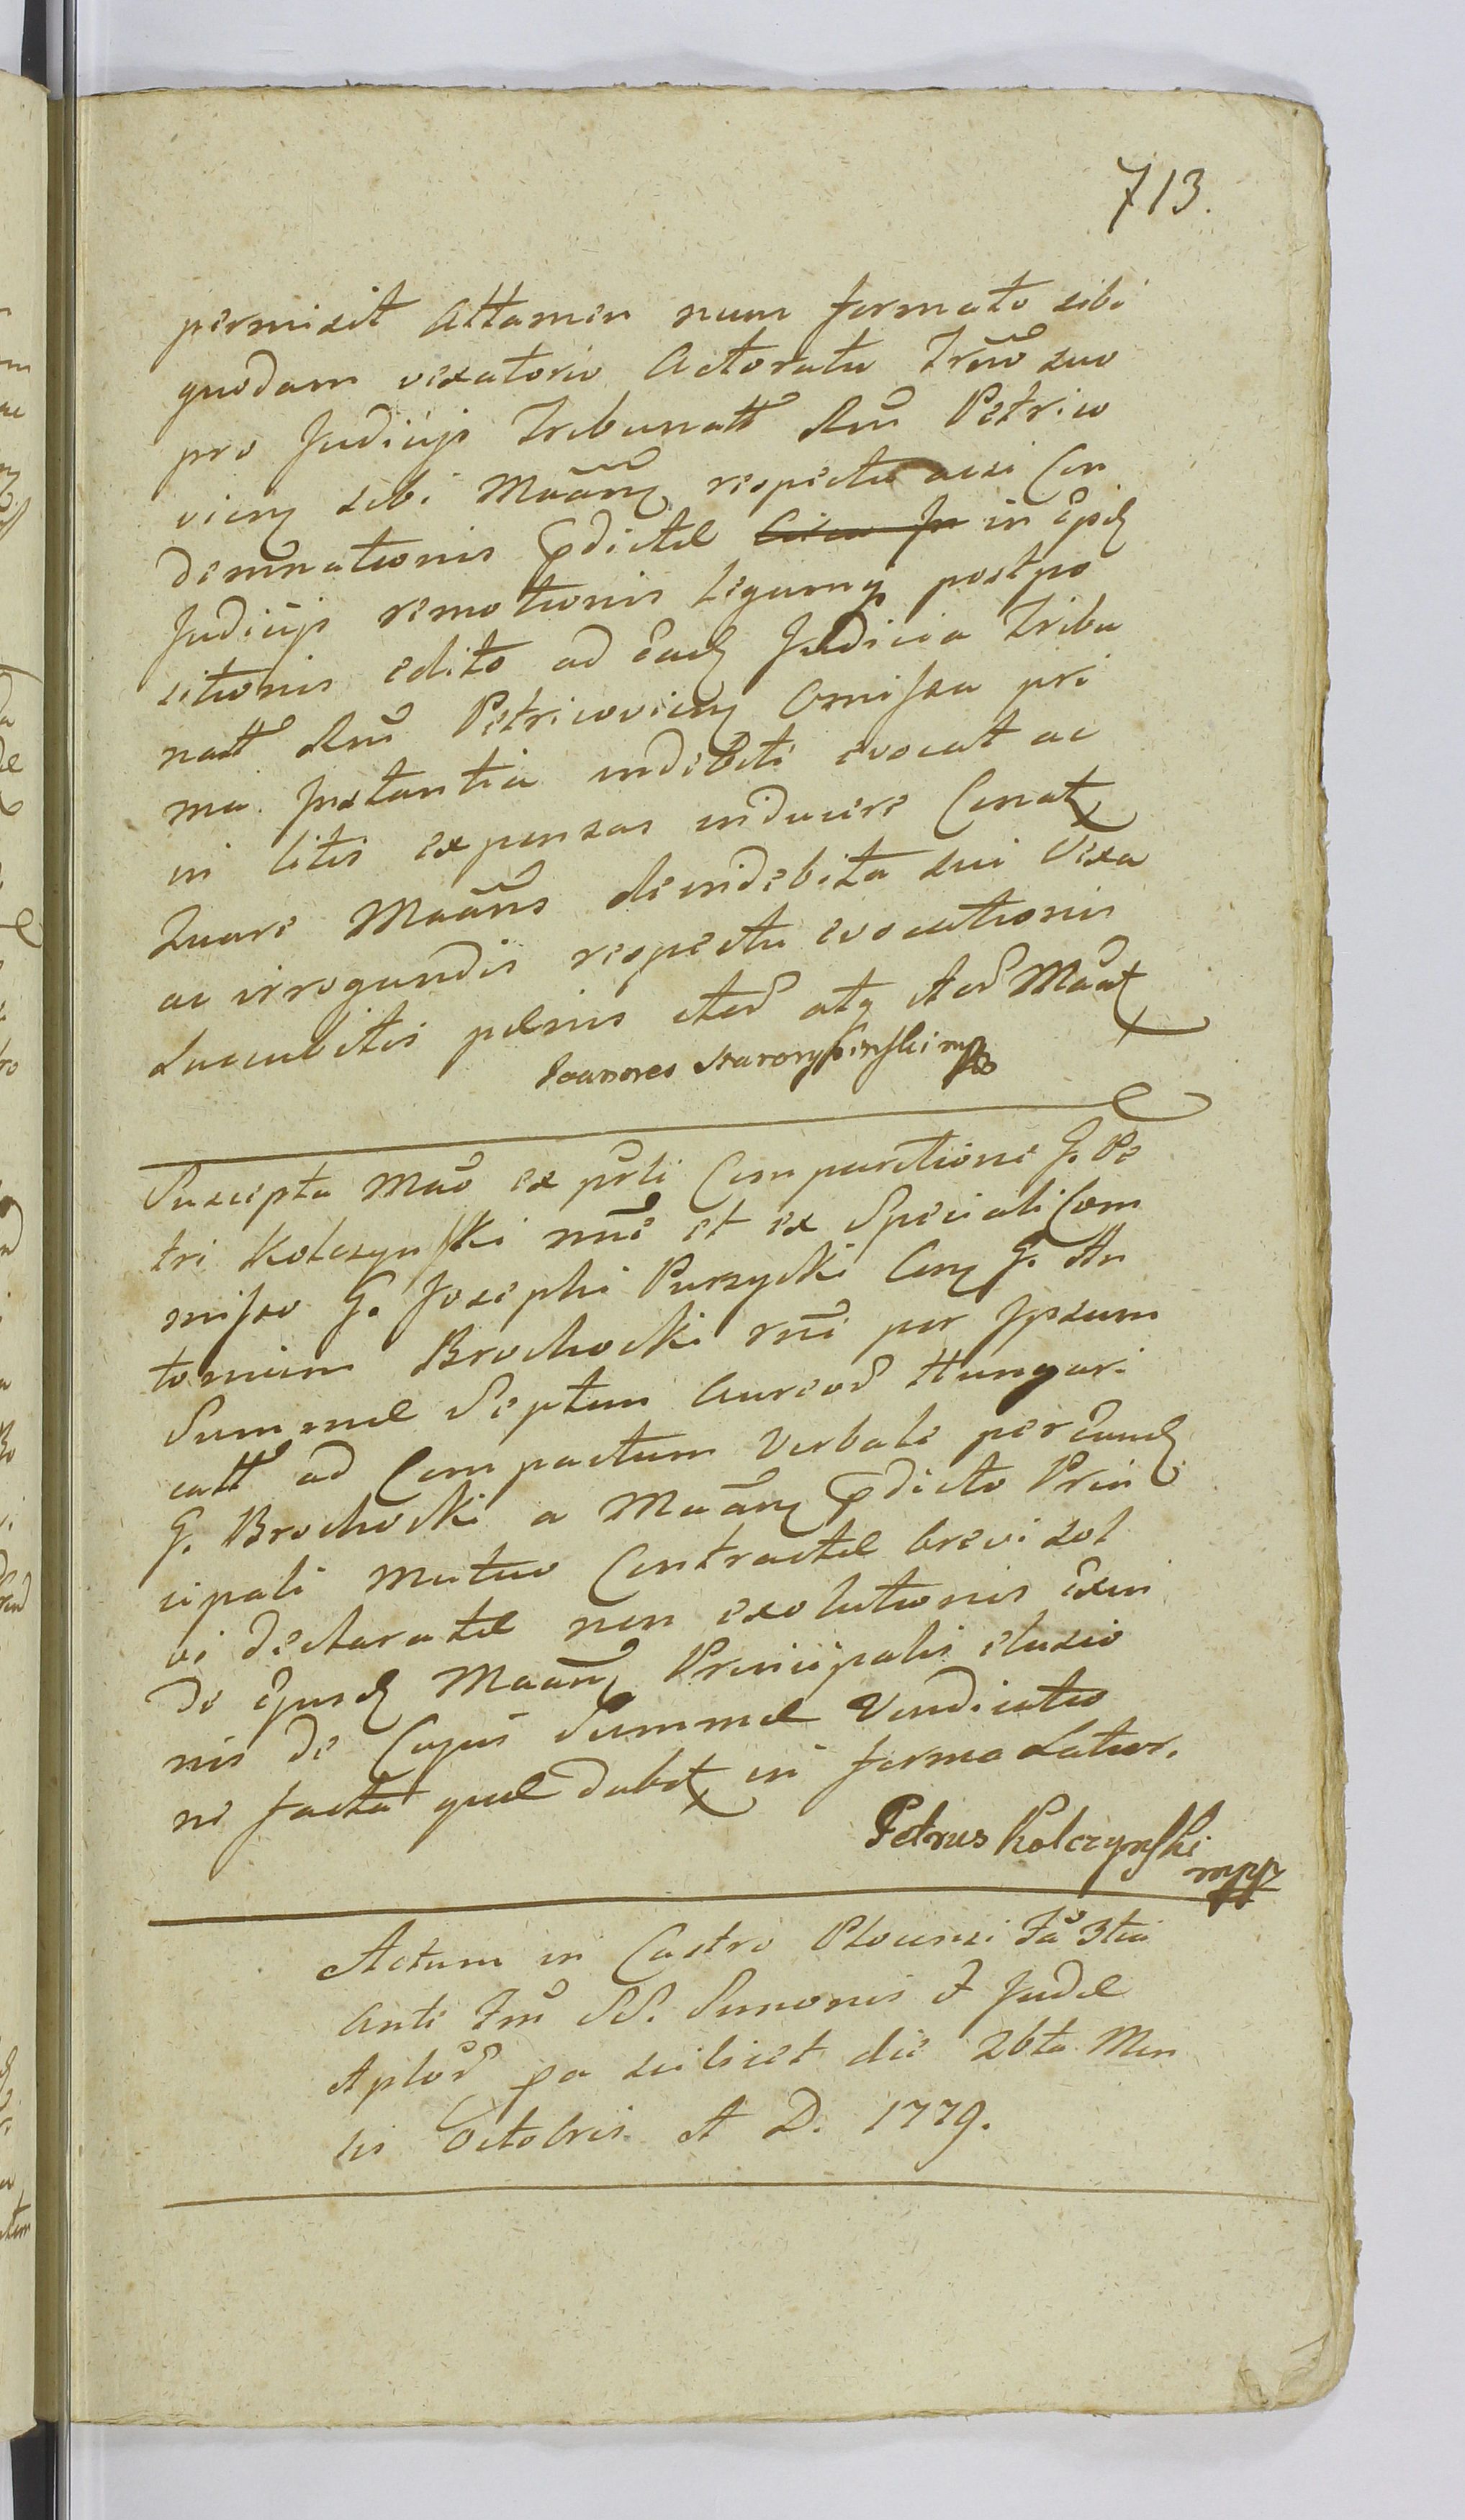 713.
permisit Attamen nunc formato sibi
quodam vexatorio Actoratu Trm̃o suo
pro Judicijs Tribunatt Rñi Petrico
vien sibi Mãan respectu acsi Con
demnationis pdictæ in Ejusd
Judicijs remotionis Legumq postpo
sitionis edito ad Eadem Judicia Tribu
natt Rñi Petricovien Omissa pri
ma Instantia indebiti evocat ac
in litis expensas inducere Conat
Quare Mãans de indebita sui Vexa
ac irrogandis respectu evocationis
succubitis pænis Itd atq Itd Mãat
Joannes Starorypinski mpp
Suscepta Mão ex pñti Comparitione G. Pe
tri Kolczynski nñe et ex Speciali Com
misso G. Josephi Purzycki Con G. An
tonium Brochocki rñe per Ipsum
Summæ Septem Aureor Hungari
catt ad Compactum Verbale per Eund
G. Brochocki a Mãan pdicto Prin
cipali Mutuo Contractæ brevi sol
vi declaratæ non exolutionis Exin
de Ejusd Mãan Principalis elusio
nis de Cujus Summæ Vendicatio
ne facta quæ dabit in forma Latior.
Petrus Kolczynski
mpp
Actum in Castro Plocensi Fã 3tia
Anti Fm̃ SS. Simonis & Judæ
Aplor̃ pa scilicet die 26ta Men
sis Octobris A D. 1779.